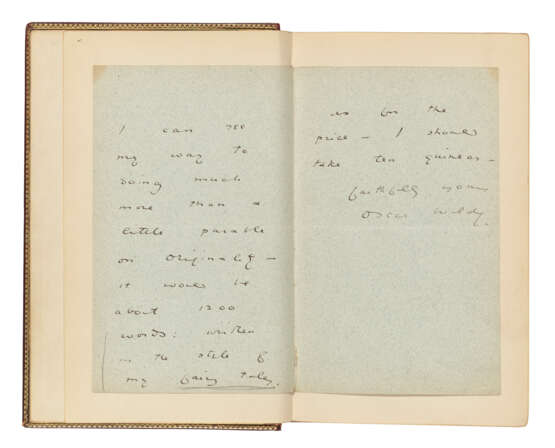 I can see
my way to
doing much
more than a
little parable
on Originality –
it would be
about 1200
words: written
in the style of
my fairy tales.
as for the
price – I should
take ten guineas –
faithfully yours
Oscar Wilde.